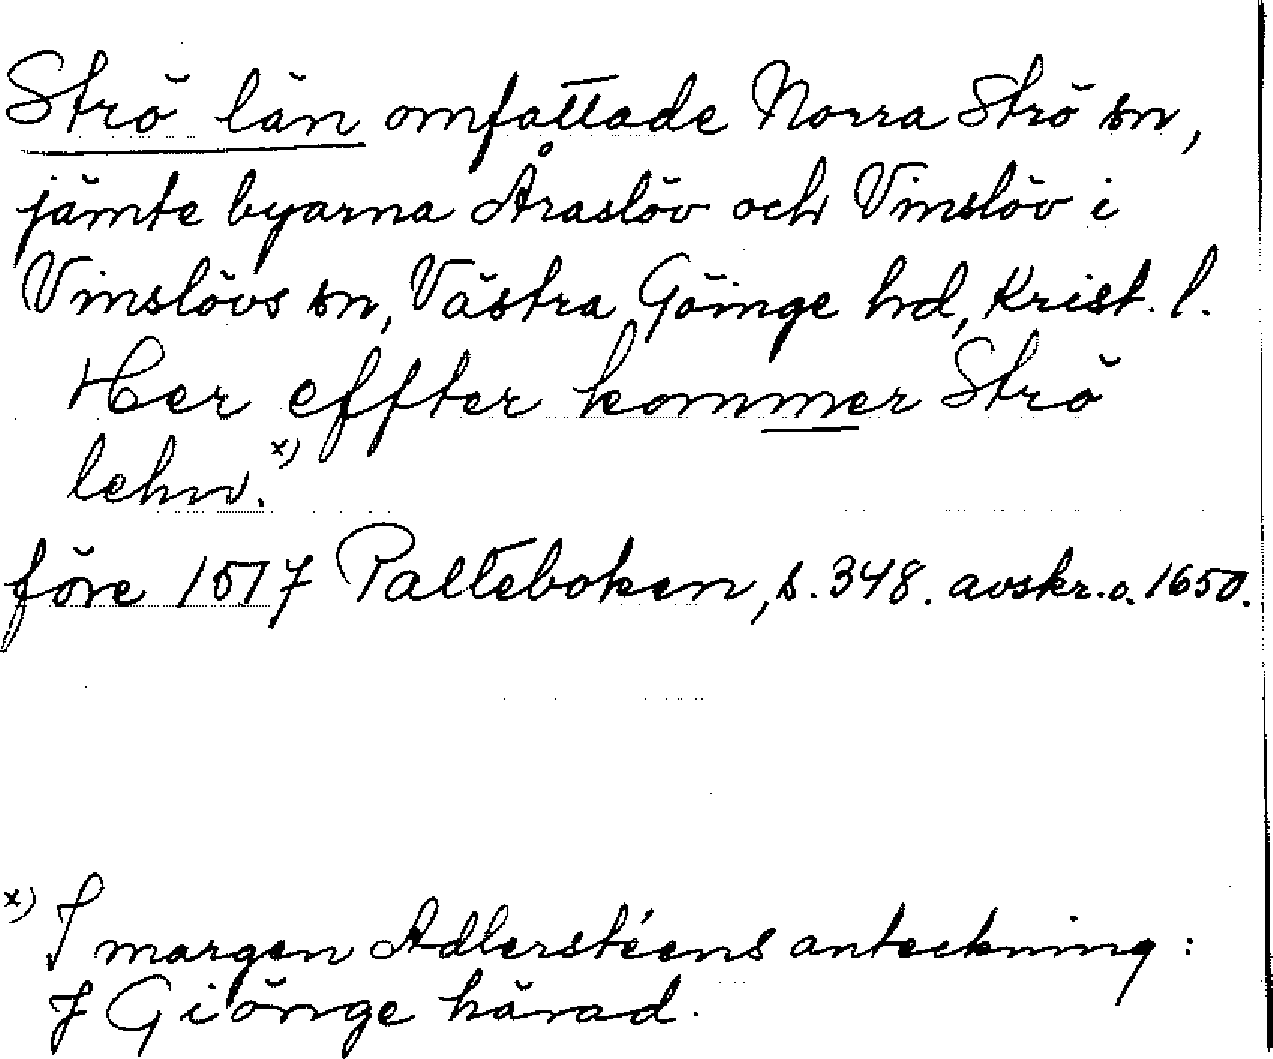 Strö län omfattade Norra Strö sn,
jämte byarna Åraslöv och Vinslöv i
Vinslövs sn, Västra Göinge hd, Krist. l.
Her effter kommer Strö
lehn.x)
före 1517 Palteboken, s. 348. avskr. o. 1650.
x) I margen Adlerstéens anteckning:
J Giönge härad.